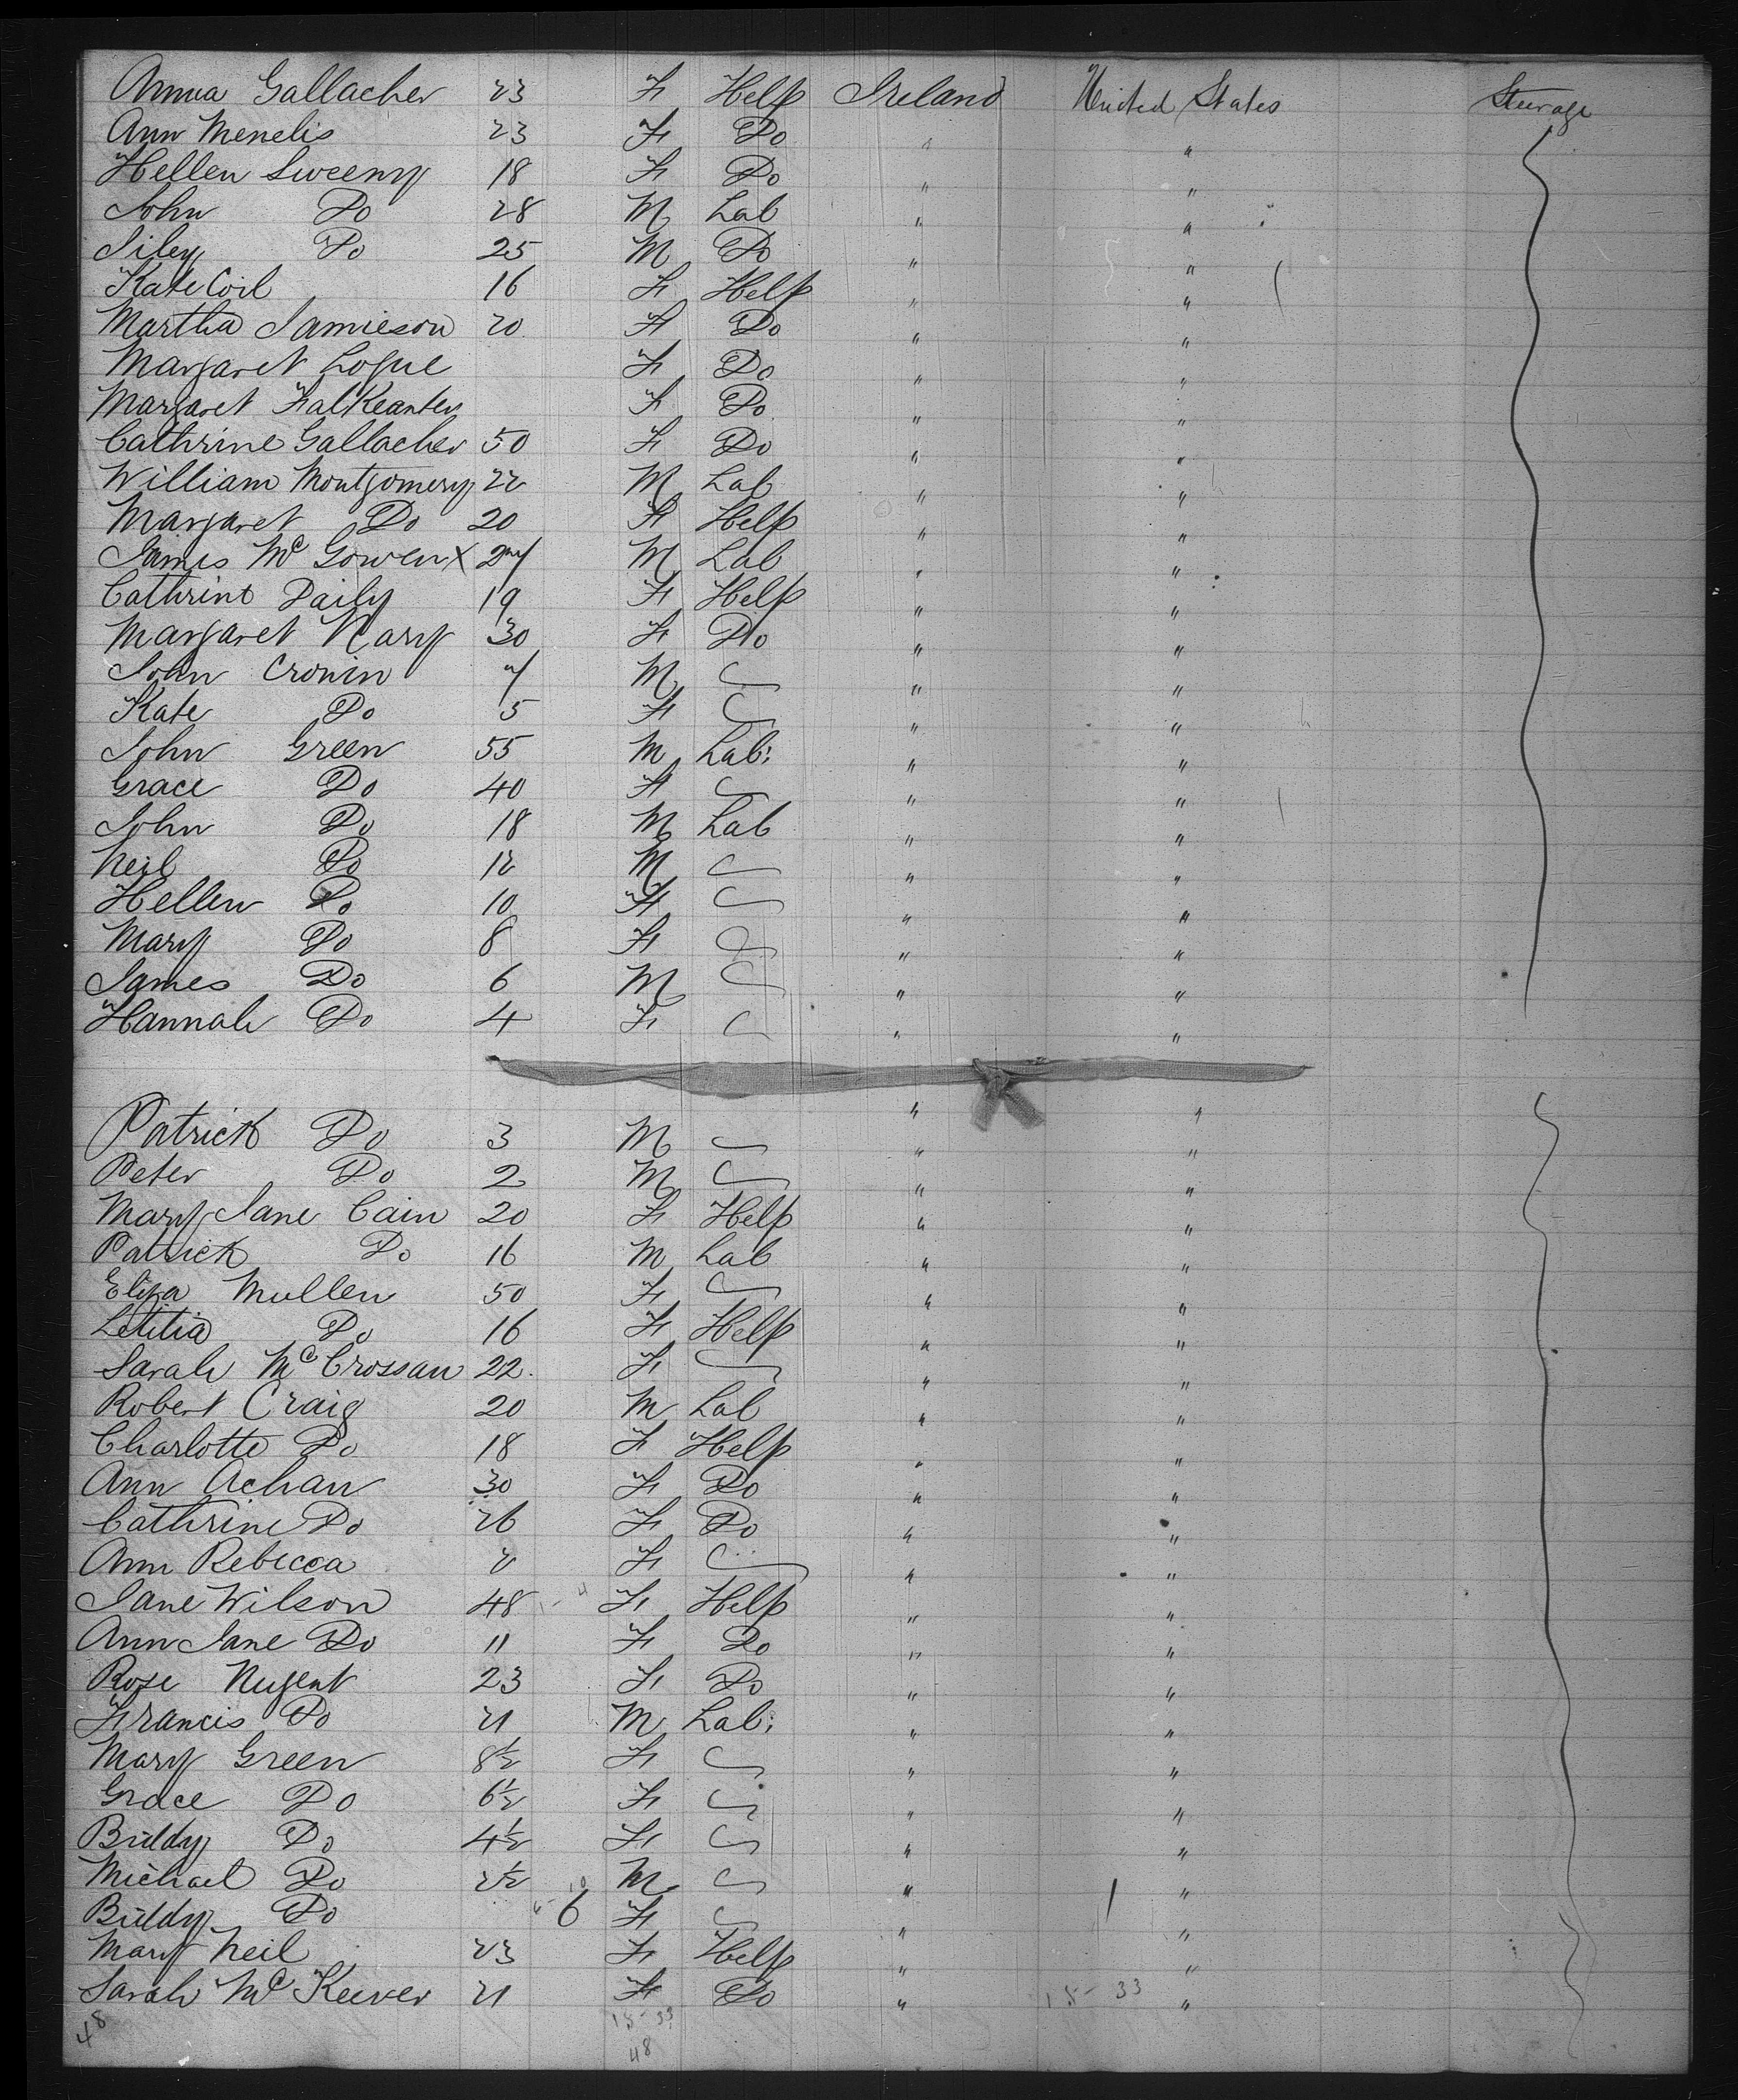 Annia Gallacher 23 F Help Ireland United States Steerage
Ann Menelis 23 F Do " "
Hellen Sweeny 18 F Do " "
John Do 28 M Lab " "
Siley Do 25 M Do " "
Kate Coil 16 F Help " "
Martha Jamieson 20 F Do " "
Margaret Logue F Do " "
Margaret F Do " "
Cathrine Gallacher 50 F Do " "
William Montgomery 22 M Lab " "
Margaret Do 20 F Help " "
James Mc Gowen X 27 M Lab " "
Cathrine Daily 19 F Help " "
Margaret Nary 30 F Do " "
John Cronin 7 M " "
Kate Do 5 F " "
John Green 55 M Lab: " "
Grace Do 40 F " "
John Do 18 M Lab " "
Neil Do 12 M " "
Hellen Do 10 F " "
Mary Do 8 F " "
James Do 6 M " "
Hannah Do 4 F " "
" "
Patrick Do 3 M " "
Peter Do 2 M " "
Mary Jane Cain 20 F Help " "
Patrick Do 16 M Lab " "
Eliza Mullen 50 F " "
Letitia Do 16 F Help " "
Sarah Mc Crossan 22. F " "
Robert Craig 20 M Lab " "
Charlotte Do 18 F Help " "
Ann Achan 30 F Do " "
Cathrine Do 26 F Do " "
Ann Rebecca 2 F " "
Jane Wilson 48 F Help " "
Ann Jane Do 11 F Do " "
Rose Nugent 23 F Do " "
Francis Do 21 M Lab: " "
Mary Green 8½ F " "
Grace Do 6½ F " "
Biddy Do 4½ F " "
Michael Do 2½ M " "
Biddy Do 6 F " "
Mary Neil 23 F Help " "
Sarah Mc Keever 21 F Do " "
15-33
48 15-33
48